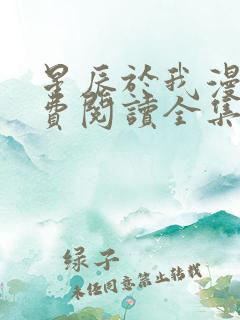 星辰於我漫
費閱讀全集
绿子
未经同意禁止转载